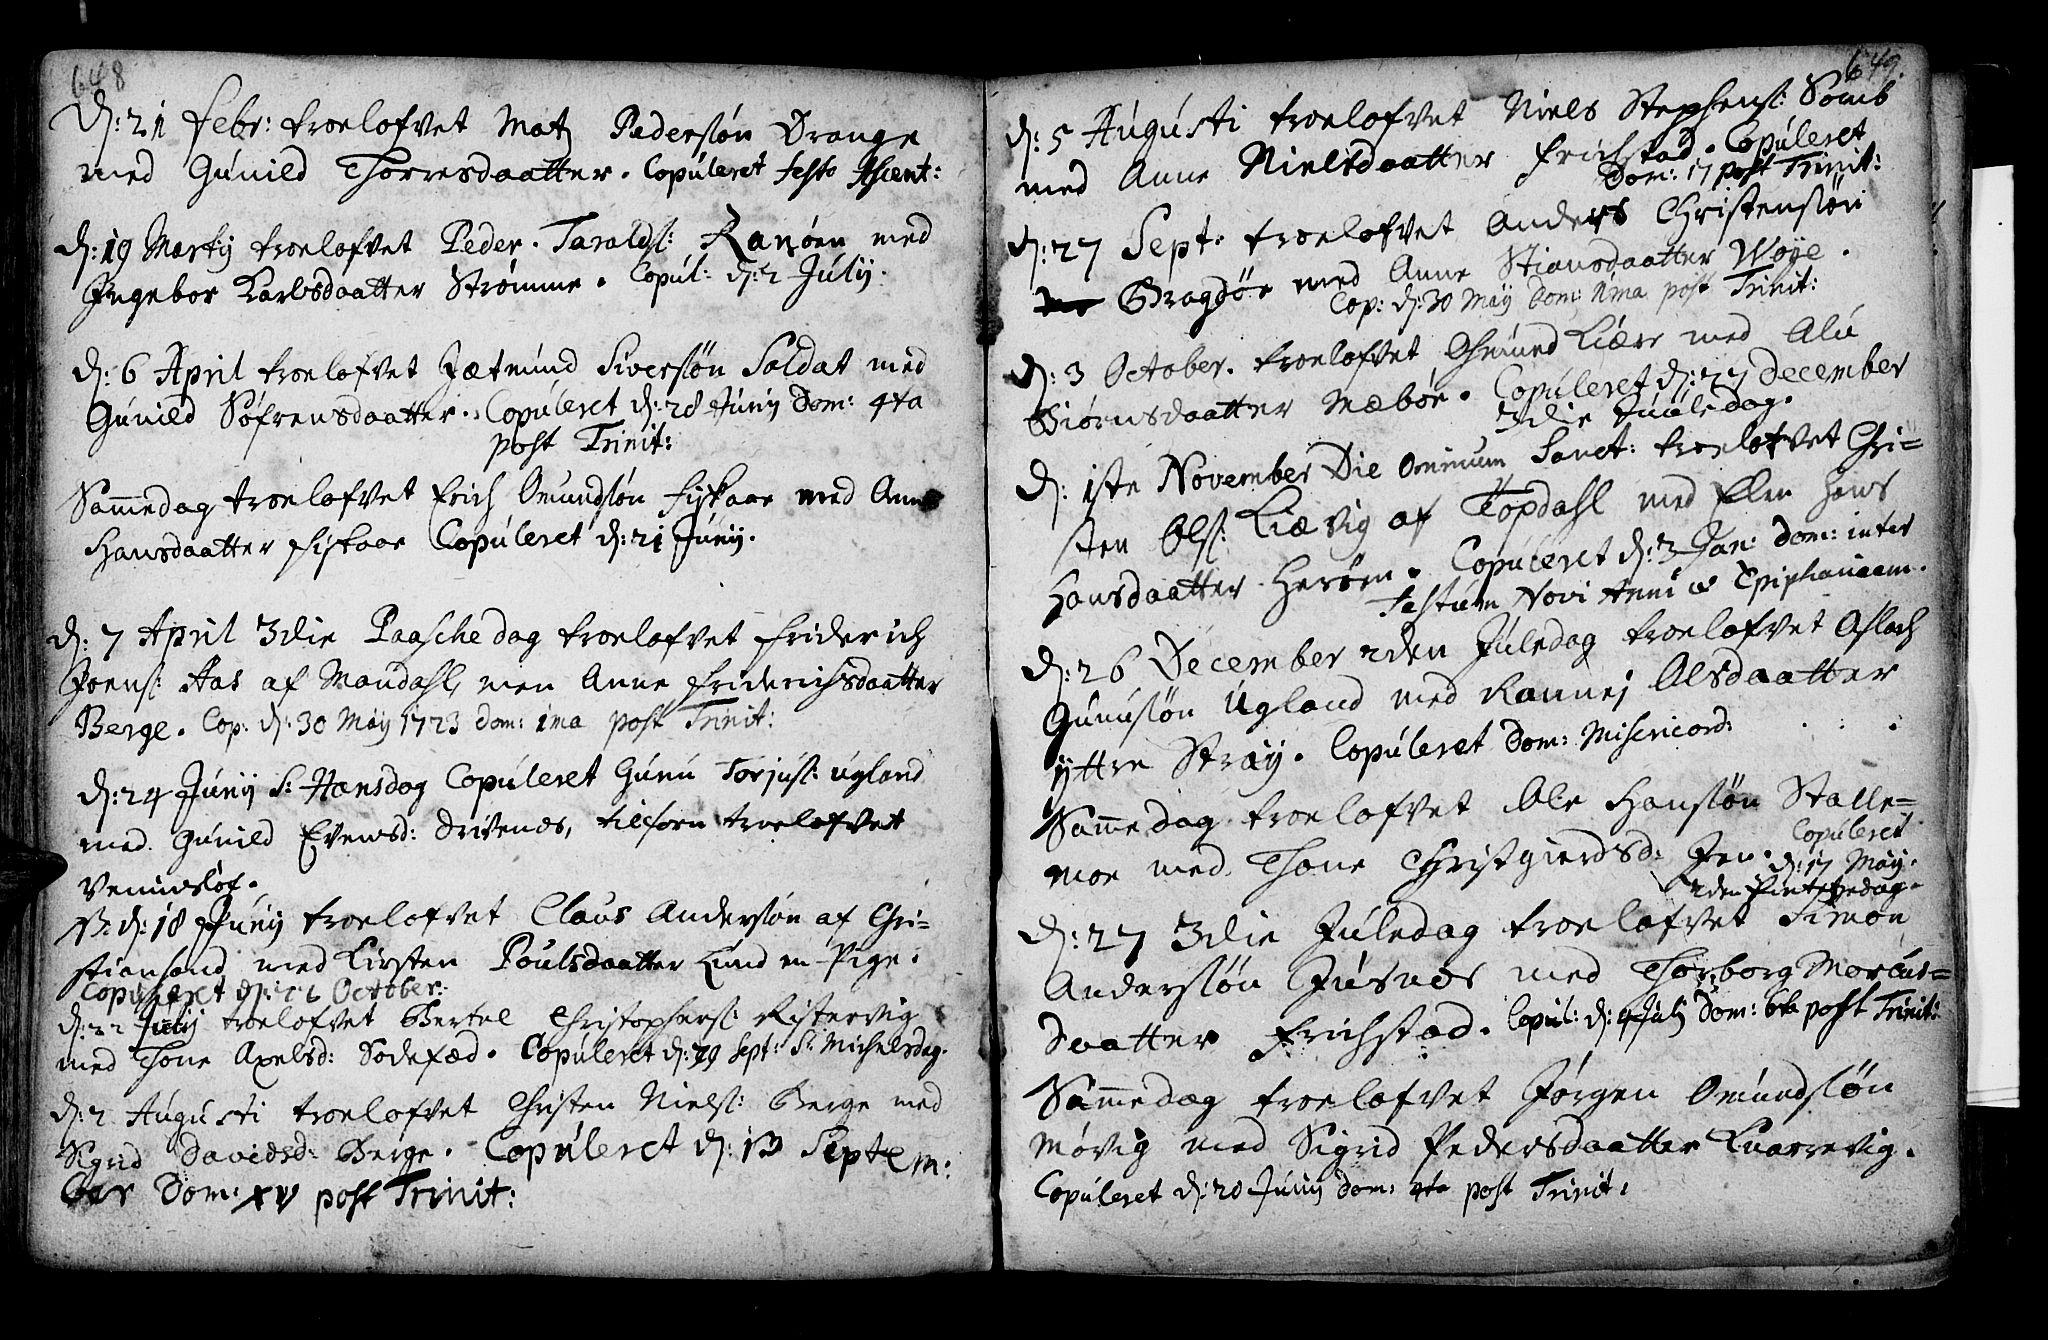 648
D: 21 Febr: troelofvet Mats Pedersøn Drange
med Gunild Thorresdaatter. Copúleret festo Ascent:
D: 19 Martij troelofvet Peder Taralds: Ranøen med
Ingebor Karlsdaatter Strømme. Copúl: d: 2 Júlij.
D: 6 April troelofvet Jætmúnd Siversøn Soldat med
Gúnild Søfrensdaatter. Copúleret d: 28 Júnij Dom: 4ta
post Trinit:
Sam̅edag troelofvet Erich Omundsøn Fiskaae med Anne
Hansdaatter Fiskaae Copúleret d: 21 Júnij.
D: 7 April 3die Paaschedag troelofvet Friderich
Joens: Aas af Mandahl, men Anne Friderichsdaatter
Berge. Cop: d: 30 Maij 1723 dom: 1ma post Trinit:
D: 24 Júnij S: Hansdag Copúleret Gúnú Torjús: Ugland
med Gúnild Evensd: Drivenes, tilforn troelofvet
Vennesløf.
NB: d: 18 Júnij troelofvet Claus Andersøn af Chri-
stiansand med Kirsten Poúlsdaatter Lund en Pige.
Copúleret d: 22 October:
D: 22 Júlij troelofvet Bertel Christophers: Ristervig
med Thone Axelsd: Sodefæd. Copúleret d: 29 Sept: S: Michelsdag.
D: 2 Aúgústi troelofvet Christen Niels: Berge med
Sigrid Davidsd: Berge. Copúleret d: 13 Septem:
ber Dom: XV post Trinit:
649.
D: 5 Aúgústi troelofvet Niels Stephens: Somb
med Anne Nielsdaatter Frichstad. Copúleret
Dom: 17 post Trinit:
D: 27 Sept: troelofvet Anders Christensøn
Bragdøe med Anne Stiansdaatter Woye.
Cop: d: 30 Maij Dom: 1ma post Trinit:
D: 3 October. troelofvet Osmund Kiær med Alú
Biørnsdaatter Mæbøe. Copúleret d: 27 December
3die Júúledag.
D: 1ste November Die Omnium Sanct: troelofvet Chri-
sten Ols: Kiævig af Topdahl med Elen Hans
Hansdaatter Herøen. Copúleret d: 3 Jan: Dom: inter
Festum Novi Anni & Epiphaniam.
D: 26 December 2den Júledag troelofvet Aslach
Gunúsøn Úgland med Rannej Olsdaatter
ýttre Straÿ. Copúleret Dom: Misericord:
Sam̅edag troelofvet Ole Hansøn Stalle-
moe med Thone Christgierdsd: Jen. Copúleret
d: 17 Maij.
2den Pintsedag.
D: 27 3die Júledag troelofvet Simon
Andersøn Júsnes med Thorborg Marcus-
daatter Frichstad. Copúl: d: 4 Júlij Dom: 6ta post Trinit:
Sam̅edag troelofvet Jørgen Omúndsøn
Møvig med Sigrid Pedersdaatter Kuarrevig.
Copúleret d: 20 Júnij Dom: 4ta post Trinit: